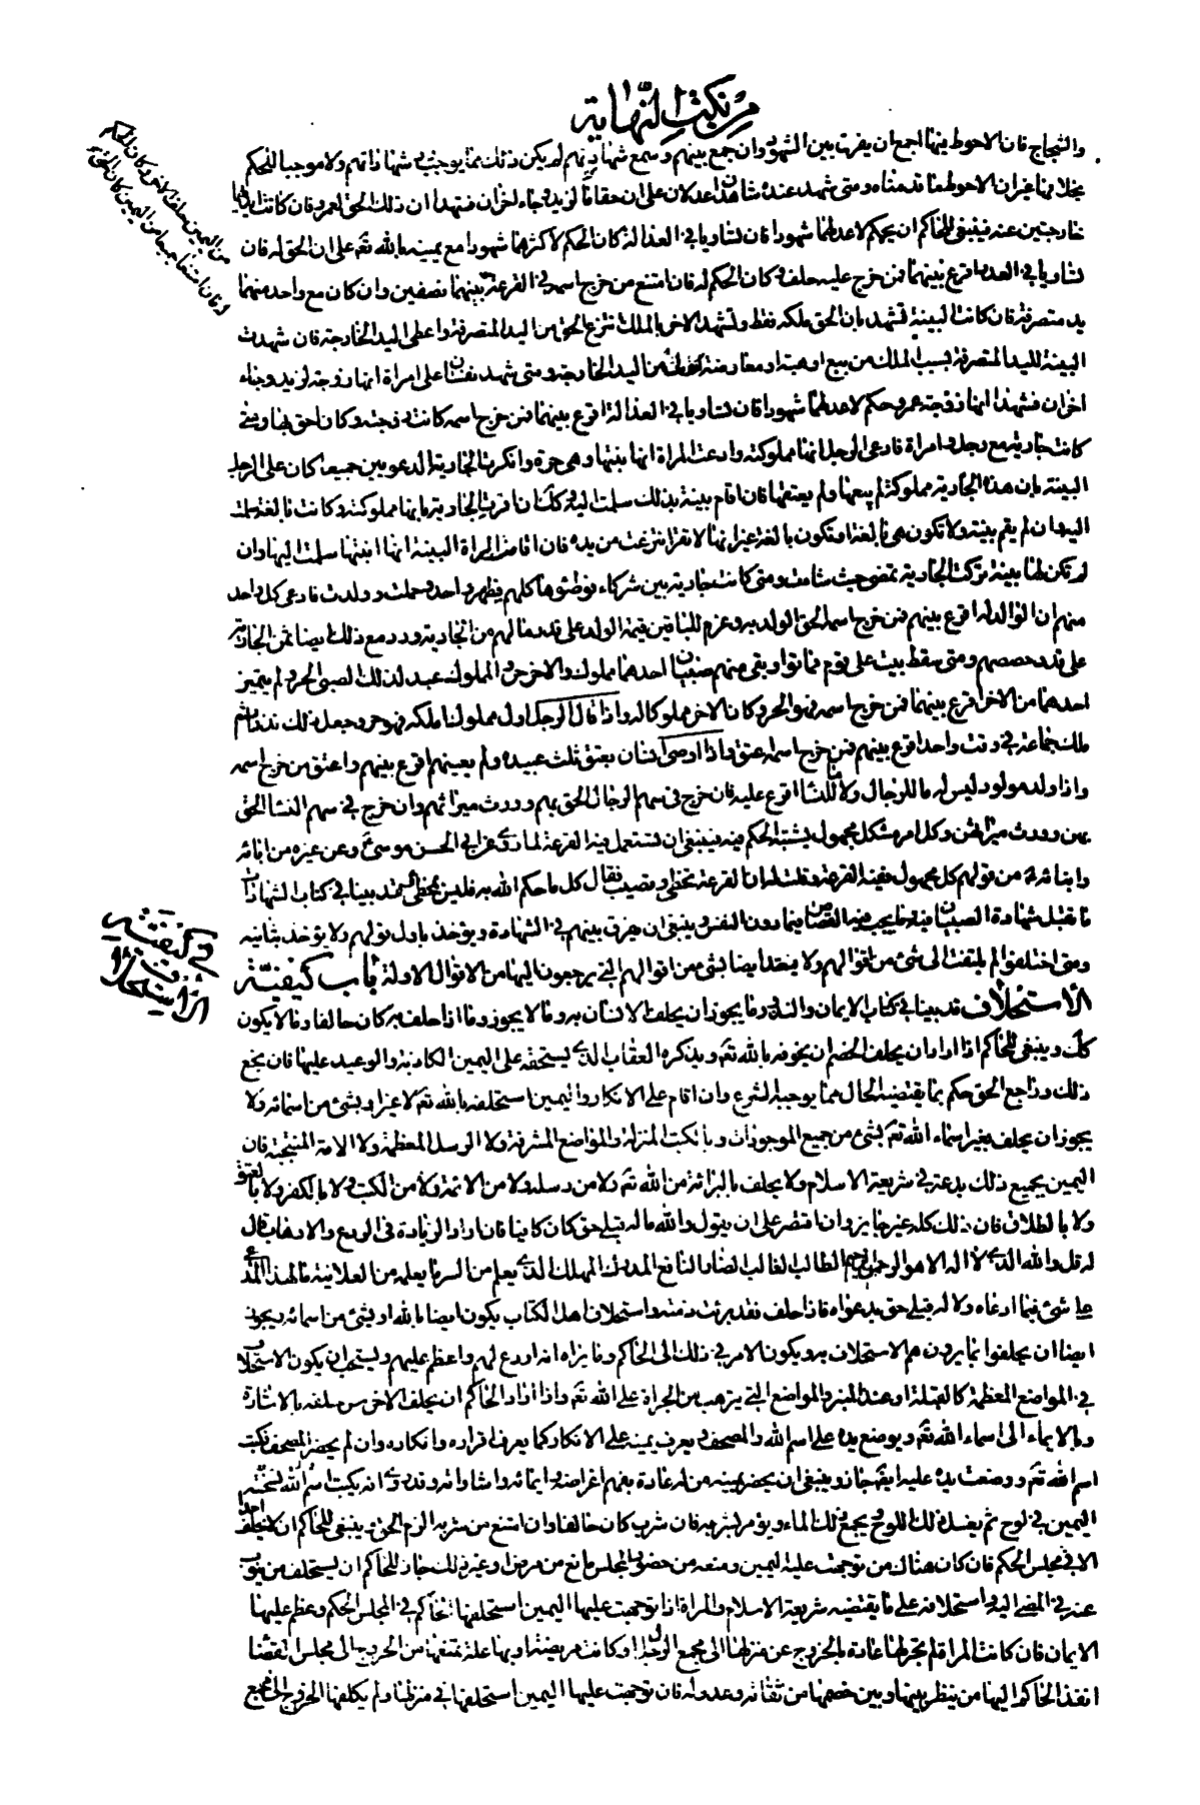 من نكت النهاية
والشجاج فان الاحوط فيها اجمع ان يفرق بين الشهود وان جمع بينهم وسمع شهادتهم لم يكن ذلك مما يوجب رد شهاداتهم ولا موجبا للحكم
بخلافها غير ان الاحوط ما قدمناه ومتى شهد عنده شاهدان عدلان على ان حقا ما لزيد وجاء اخران فشهدا ان ذلك الحق لعمرو فان كانت ايديهما
خارجتين عنه فينبغي للحاكم ان يحكم لاعدلهما شهودا فان تساويا في العدالة كان الحكم لاكثرهما شهودا مع يمينه بالله تعه على ان الحق له فان
تساويا في العدد اقرع بينهما فمن خرج عليه حلف وكان الحكم له فان امتنع من خرج اسمه في القرعة بينهما نصفين وان كان مع واحد منهما
يد متصرفة فان كانت البينة تشهد بان الحق ملكه فقط وتشهد الاخر بالملك انتزع الحق من اليد المتصرفة واعطى اليد الخارجة فان شهدت
البينة لليد المتصرفة بسبب الملك من بيع او هبة او معاوضة كانت من اليد الخارجة ومتى شهد نفسان على امراة انها زوجة لزيد وجاء
اخران فشهدا انها زوجة عمرو حكم لاعدلهما شهودا فان تساويا في العدالة اقرع بينهما فمن خرج اسمه كانت زوجته وكان احق بها ومتى
كانت جارية مع رجل وامراة فادعى الرجل انها مملوكته وادعت المراة انها بنتها وهي حرة وانكرت الجارية الدعويين جميعا كان على الرجل
البينة بان هذه الجارية مملوكة لم يبعها ولم يعتقها فان اقام بينة بذلك سلمت اليه وكك ان اقرت الجارية بانها مملوكته وكانت بالغة سلمت
اليه وان لم يقم بينة ولا تكون هي بالغة او تكون بالغة غير انها لا تقر انتزعت من يده فان اقامت المراة البينة انها ابنتها سلمت اليها وان
لم تكن لها بينة تركت الجارية تمضي حيث شاءت ومتى كانت جارية بين شركاء فوطئوها كلهم في طهر واحد وحملت وولدت فادعى كل واحد
منهم ان الولد له اقرع بينهم فمن خرج اسمه الحق الولد به وغرم للباقين قيمة الولد على قدر ما لهم من الجارية ورد مع ذلك ايضا ثمن الجارية
على قدر حصصهم ومتى سقط بيت على قوم فماتوا وبقي منهم صبيان احدهما مملوك والاخر حر والمملوك عبد لذلك الصبي الحر ولم يتميز
احدهما من الاخر اقرع بينهما فمن خرج اسمه فهو الحر وكان الاخر مملوكا له واذا قال الرجل اول مملوك املكه فهو حر وجعل ذلك نذرا ثم
ملك جماعة في وقت واحد اقرع بينهم فمن خرج اسمه عتق واذا اوصى انسان بعتق ثلث عبيده ولم يعينهم اقرع بينهم واعتق من خرج اسمه
واذا ولد مولود ليس له ما للرجال ولا ما للنسا اقرع عليه فان خرج في سهم الرجال الحق بهم وورث ميراثهم وان خرج في سهم النسا الحق
بهن وورث ميراثهن وكل امر مشكل مجهول يشتبه الحكم فيه فينبغي ان تستعمل فيه القرعة لما روى عن ابي الحسن موسى ع وعن غيره من ابائه
وابنائه ع من قولهم كل مجهول ففيه القرعة وقلت له ان القرعة تخطي وتصيب فقال كل ما حكم الله به فليس بمخطئ وقد بينا في كتاب الشهادات
ما تقبل شهادة الصبيان فيه وما يجب فيه القصاص فيما دون النفس وينبغي ان يفرق بينهم في الشهادة ويؤخذ باول قولهم ولا يؤخذ بثانيه
ومتى اختلفوا لم يلتفت الى شئ من اقوالهم ولا يعتد ايضا بشئ من اقوالهم التي يرجعون اليها من الاقوال الاولة باب كيفية
الاستحلاف قد بينا في كتاب الايمان والنذور ما يجوز ان يحلف الانسان به وما لا يجوز وما اذا حلف به كان حالفا وما لا يكون
كك وينبغي للحاكم اذا اراد ان يحلف الخصم ان يخوفه بالله تعه ويذكره العقاب الذي يستحقه على اليمين الكاذبة والوعيد عليها فان نجع
ذلك وراجع الحق حكم بما يقتضيه الحال مما يوجبه الشرع وان اقام على الانكار واليمين استحلفه بالله تعه لا غير او بشئ من اسمائه ولا
يجوز ان يحلف بغير اسماء الله تعه بشئ من جميع الموجودات وبالكتب المنزلة والمواضع المشرفة ولا الرسل المعظمة ولا الائمة المنتجبة فان
اليمين بجميع ذلك بدعة في شريعة الاسلام ولا يحلف بالبرائة من الله تعه ولا من رسله ولا من الائمة ولا من الكتب ولا بالكفر ولا بالعتق
ولا بالطلاق فان ذلك كله غير جايز وان اقتصر على ان يقول والله ما له قبلي حق كان كافيا فان اراد الزيادة في الردع والارهاب قال
له قل والله الذي لا اله الا هو الرحمن الرحيم الطالب الغالب الضار النافع المدرك المهلك الذي يعلم من السر ما يعلمه من العلانية ما لهذا المدعي
علي شئ فيما ادعاه ولا له قبلي حق بدعواه فاذا حلف فقد برئت ذمته واستحلاف اهل الكتاب يكون ايضا بالله او بشئ من اسمائه ويجوز
ايضا ان يحلفوا بما يرون هم الاستحلاف به ويكون الامر في ذلك الى الحاكم وما يراه انه اردع لهم واعظم عليهم ويستحب ان يكون الاستحلاف
في المواضع المعظمة كالقبلة او عند المنبر والمواضع التي يرهب من الجراة على الله تعه واذا اراد الحاكم ان يحلف الاخرس حلفه بالاشارة
وبالايماء الى اسماء الله تعه ويوضع يده على اسم الله والمصحف ويعرف يمينه على الانكار كما يعرف اقراره وانكاره وان لم يحضر المصحف فكتب
اسم الله تعه ووضعت يده عليه ايضا جاز وينبغي ان يحضر يمينه من له عادة بفهم اغراضه وايمائه واشاراته وقد روى انه يكتب اسم الله لنسخة
اليمين في لوح ثم يغسل ذلك اللوح ويجمع ذلك الماء ويؤمر بشربه فان شرب كان حالفا وان امتنع من شربه الزم الحق وينبغي للحاكم ان لا يحلف احدا
الا في مجلس الحكم فان كان هناك من توجهت عليه اليمين ومنعه من حضور المجلس مانع من مرض او غير ذلك جاز للحاكم ان يستحلف من ينوب
عنه في المضي اليه واستحلافه على ما يقتضيه شريعة الاسلام والمراة اذا توجهت عليها اليمين استحلفها الحاكم في المجلس الحكم وعظم عليها
الايمان فان كانت المراة لم تجر لها عادة بالخروج عن منزلها الى مجمع الرجال او كانت مريضة او بها علة تمنعها من الخروج الى مجلس القضا
انفذ الحاكم اليها من ينظر بينها وبين خصمها من ثقاته وعدوله فان توجهت عليها اليمين استحلفها في منزلها ولم يكلفها الخروج الى مجمع
من اليمين حلف الاخر وكان الحكم
له فان امتنعا جميعا من اليمين كان الحق
في كيفية
الاستحلاف